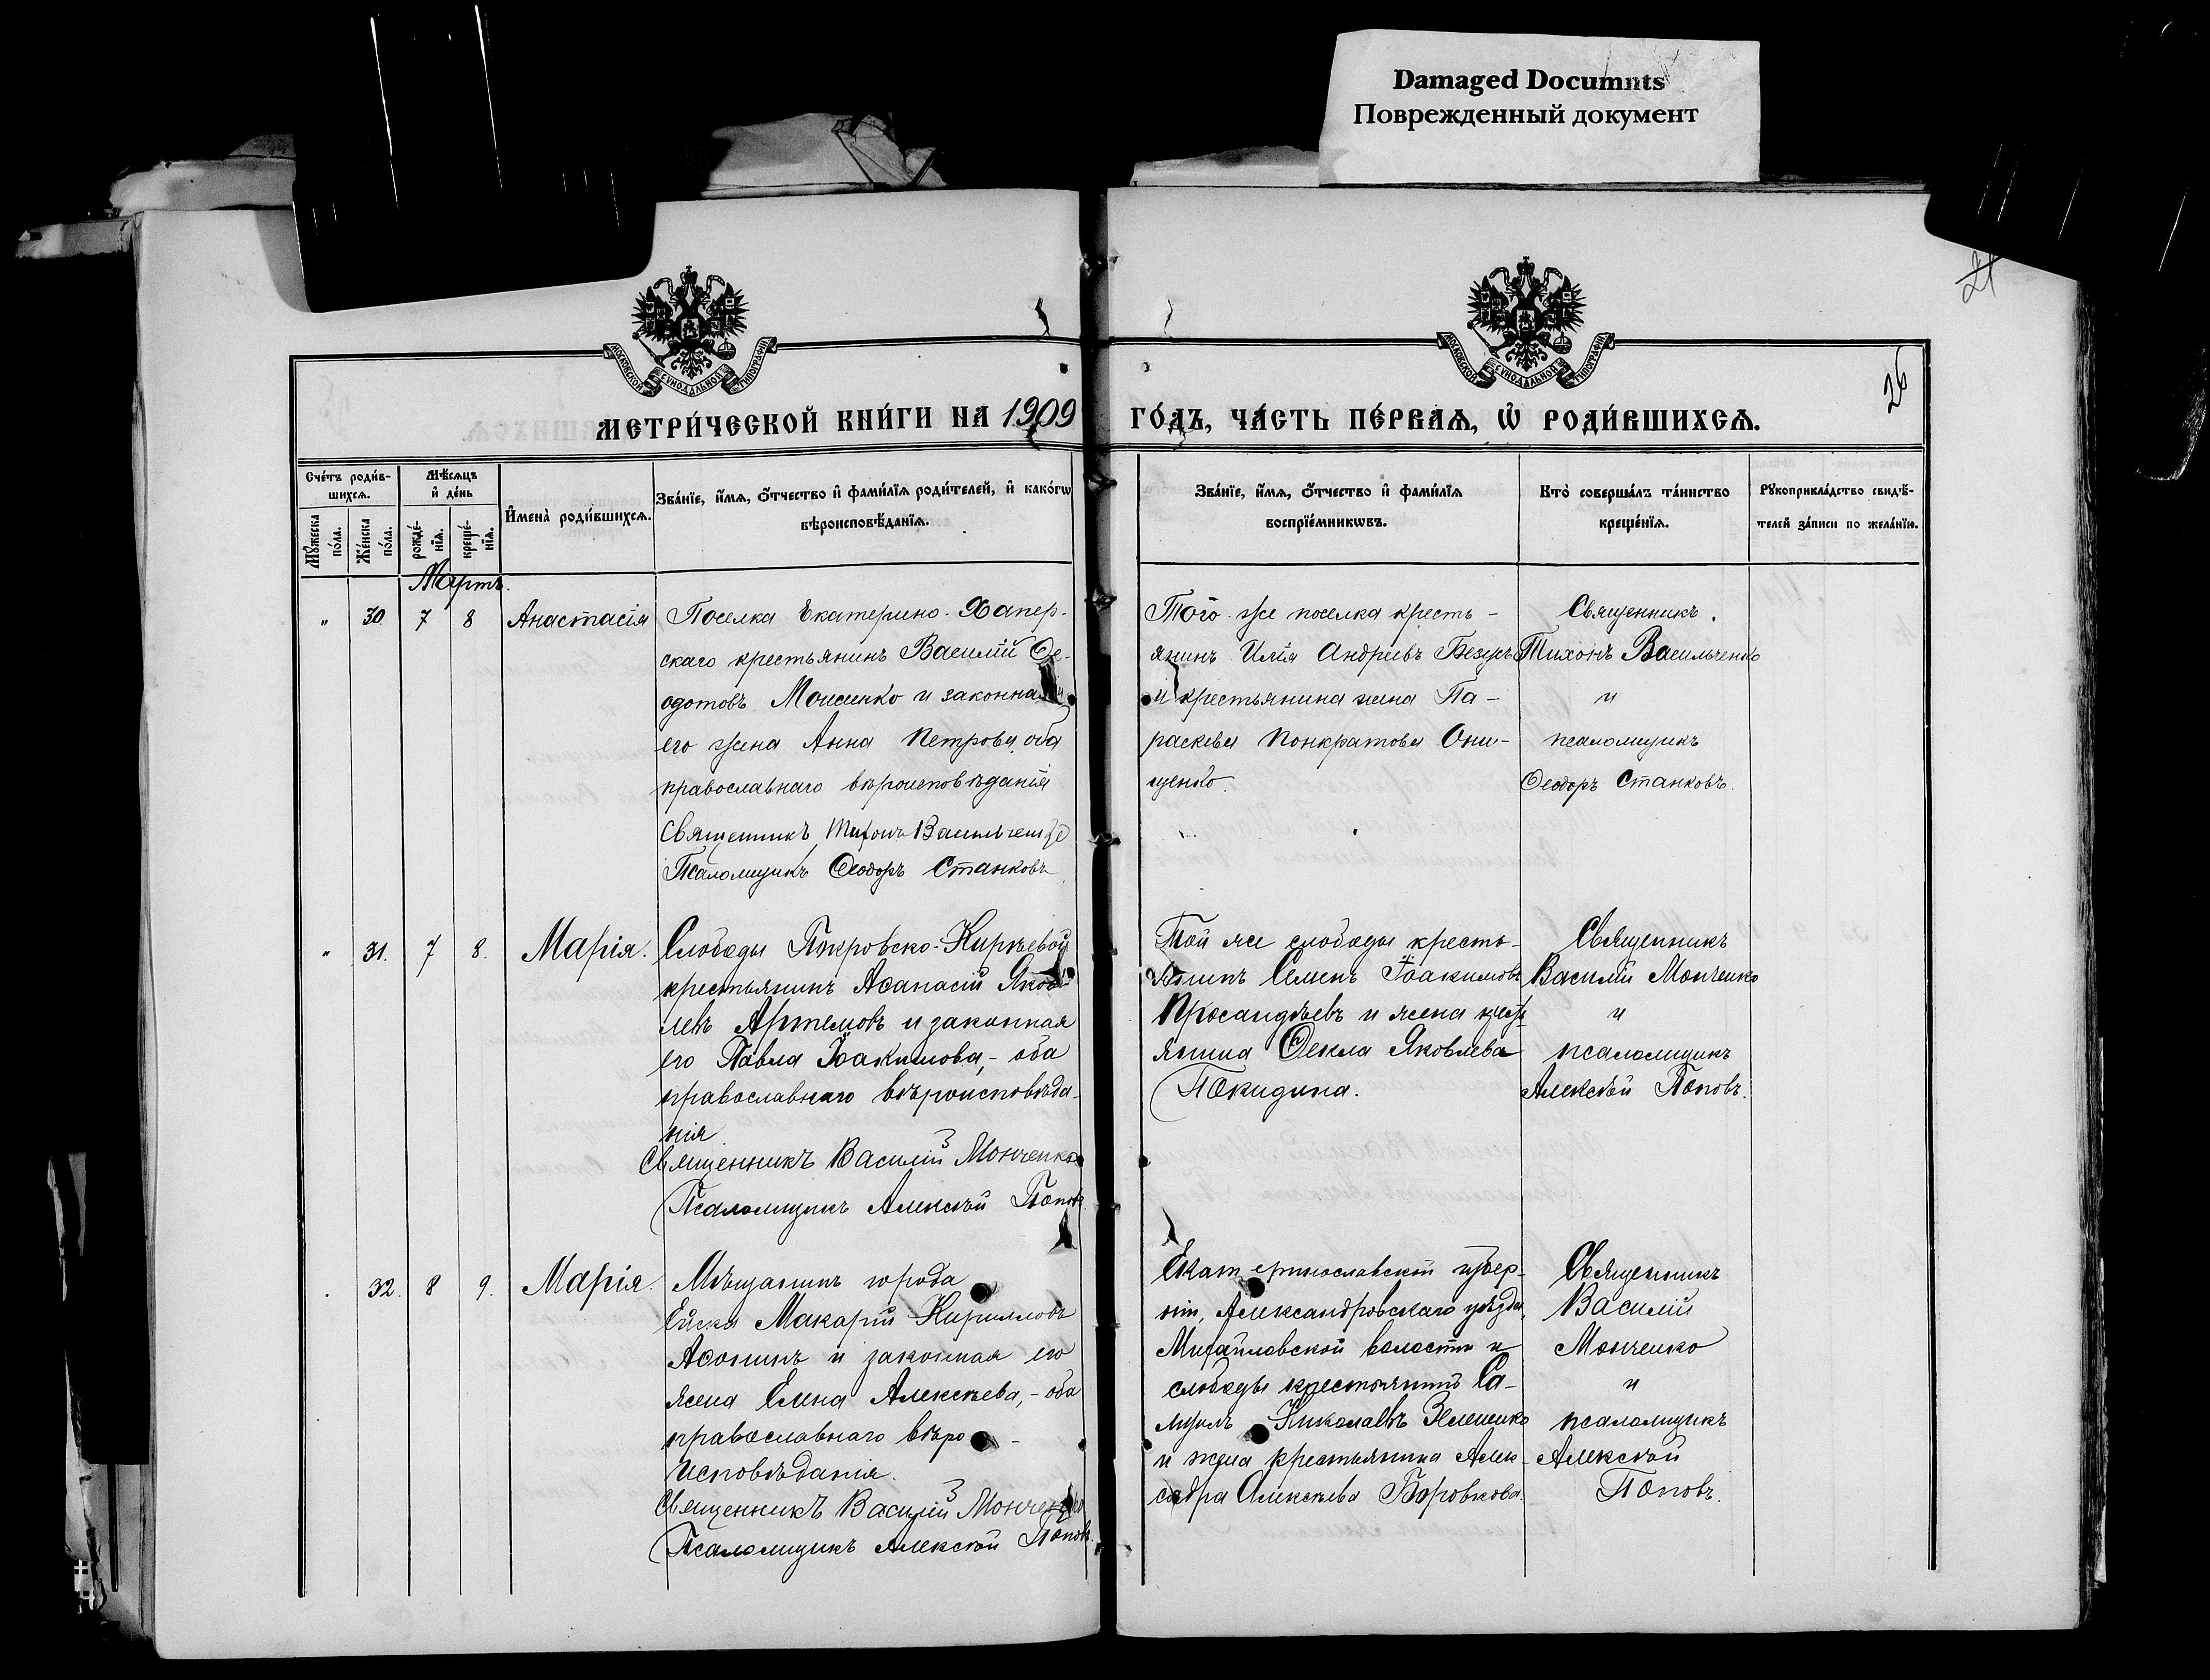 Damaged Documnts
Поврежденный документ
21
26
МОСКОВСКОЙ СУНОДАЛЬНОЙ ТИПОГРАФІИ
МОСКОВСКОЙ СУНОДАЛЬНОЙ ТИПОГРАФІИ
МЕТРИ́ЧЕСКОЙ КНИ́ГИ НА 1909 ГО́ДЪ, ЧА́СТЬ ПЕ́РВАѦ, Ѡ҆ РОДИ́ВШИХСѦ.
Сче́тъ роди́в-
шихсѧ.
Мꙋ́жеска по́ла.
Же́нска по́ла.
Мѣ́сѧцъ и҆ де́нь
рожде́-нїѧ.
креще́-нїѧ.
И҆мена̀ роди́вшихсѧ.
Зва́нїе, и҆́мѧ, ѻ҆́тчество и҆ фами́лїѧ роди́телей, и҆ како́гѡ
вѣроисповѣ́данїѧ.
Зва́нїе, и҆́мѧ, ѻ҆́тчество и҆ фами́лїѧ
воспрїе́мникѡвъ.
Кто̀ соверша́лъ та́инство
креще́нїѧ.
Рꙋкоприкла́дство свидѣ́-
телей за́писи по жела́нїю.
Мартъ.
" 30. 7 8 Анастасія
Поселка Екатерино-Хапер-
скаго крестьянинъ Василій Ѳе-
одотовъ Моисенко и законная
его жена Анна Петрова, оба
православнаго вѣроисповѣданія
Священникъ Тихонъ Васильченко
Псаломщикъ Ѳеодоръ Станковъ
Того-же поселка кресть-
янинъ Илія Андреевъ
и крестьянина жена Па-
раскева Понкратова Они-
щенко.
Священникъ
Тихонъ Васильченко
и
псаломщикъ
Ѳеодоръ Станковъ.
" 31. 7 8. Марія.
Слободы Покровско-Кирѣевой
крестьянинъ Аѳанасій Яков-
левъ Артемовъ и законная
его Павла Іоакимова, - оба
православнаго вѣроисповѣда-
нія
Священникъ Василій Мончепко
Псаломщикъ Алексѣй Поповъ
Той же слободы кресть-
янинъ Семенъ Іоакимовъ
и жена крест-
янина Ѳекла Яковлева
Покидина.
Священникъ
Василій Мончепко
и
псаломщикъ
Алексѣй Поповъ.
32. 8 9. Марія.
Мѣщанинъ города
Ейска Макарій Кирилловъ
Аѳонинъ и законная его
жена Елена Алексѣева, - оба
православнаго вѣро-
исповѣданія.
Священникъ Василій Мончепко
Псаломщикъ Алексѣй Поповъ.
Екатеринославской губер-
ніи, Александровскаго уѣзда,
Михайловской волости и
слободы крестьянинъ Са-
муилъ Николаевъ
и жена крестьянина Алек-
садра Алексѣева Боровкова.
Священникъ
Василій
Мончепко
и
псаломщикъ
Алексѣй
Поповъ.